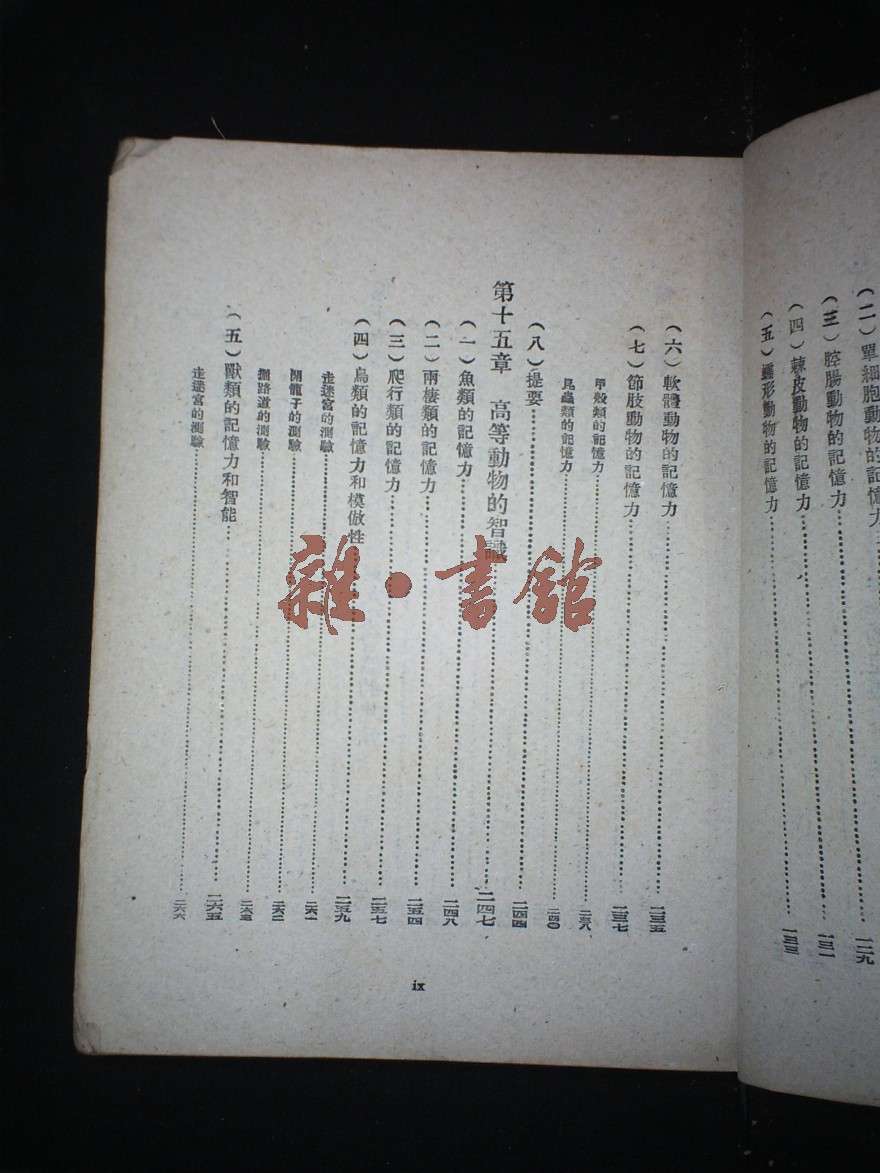 （二）單細胞動物的記憶力
二二九
（三）腔腸動物的記憶力……二三一
（四）棘皮動物的記憶力……二三三
（五）蠕形動物的記憶力
（六）軟體動物的記憶力……二三五
（七）節肢動物的記憶力……二三七
甲殼類的記憶力……二三八
昆蟲類的記憶力……二四〇
（八）提要……二四四
第十五章 高等動物的智識……二四七
（一）魚類的記憶力……二四八
（二）兩棲類的記憶力……二五四
（三）爬行類的記憶力……二五七
（四）鳥類的記憶力和模倣性……二五九
走迷宮的測驗……二六一
開籠子的測驗……二六二
路道的測驗……二六三
（五）獸類的記憶力和智能……二六五
走迷宮的測驗……二六六
ix
雜·書館